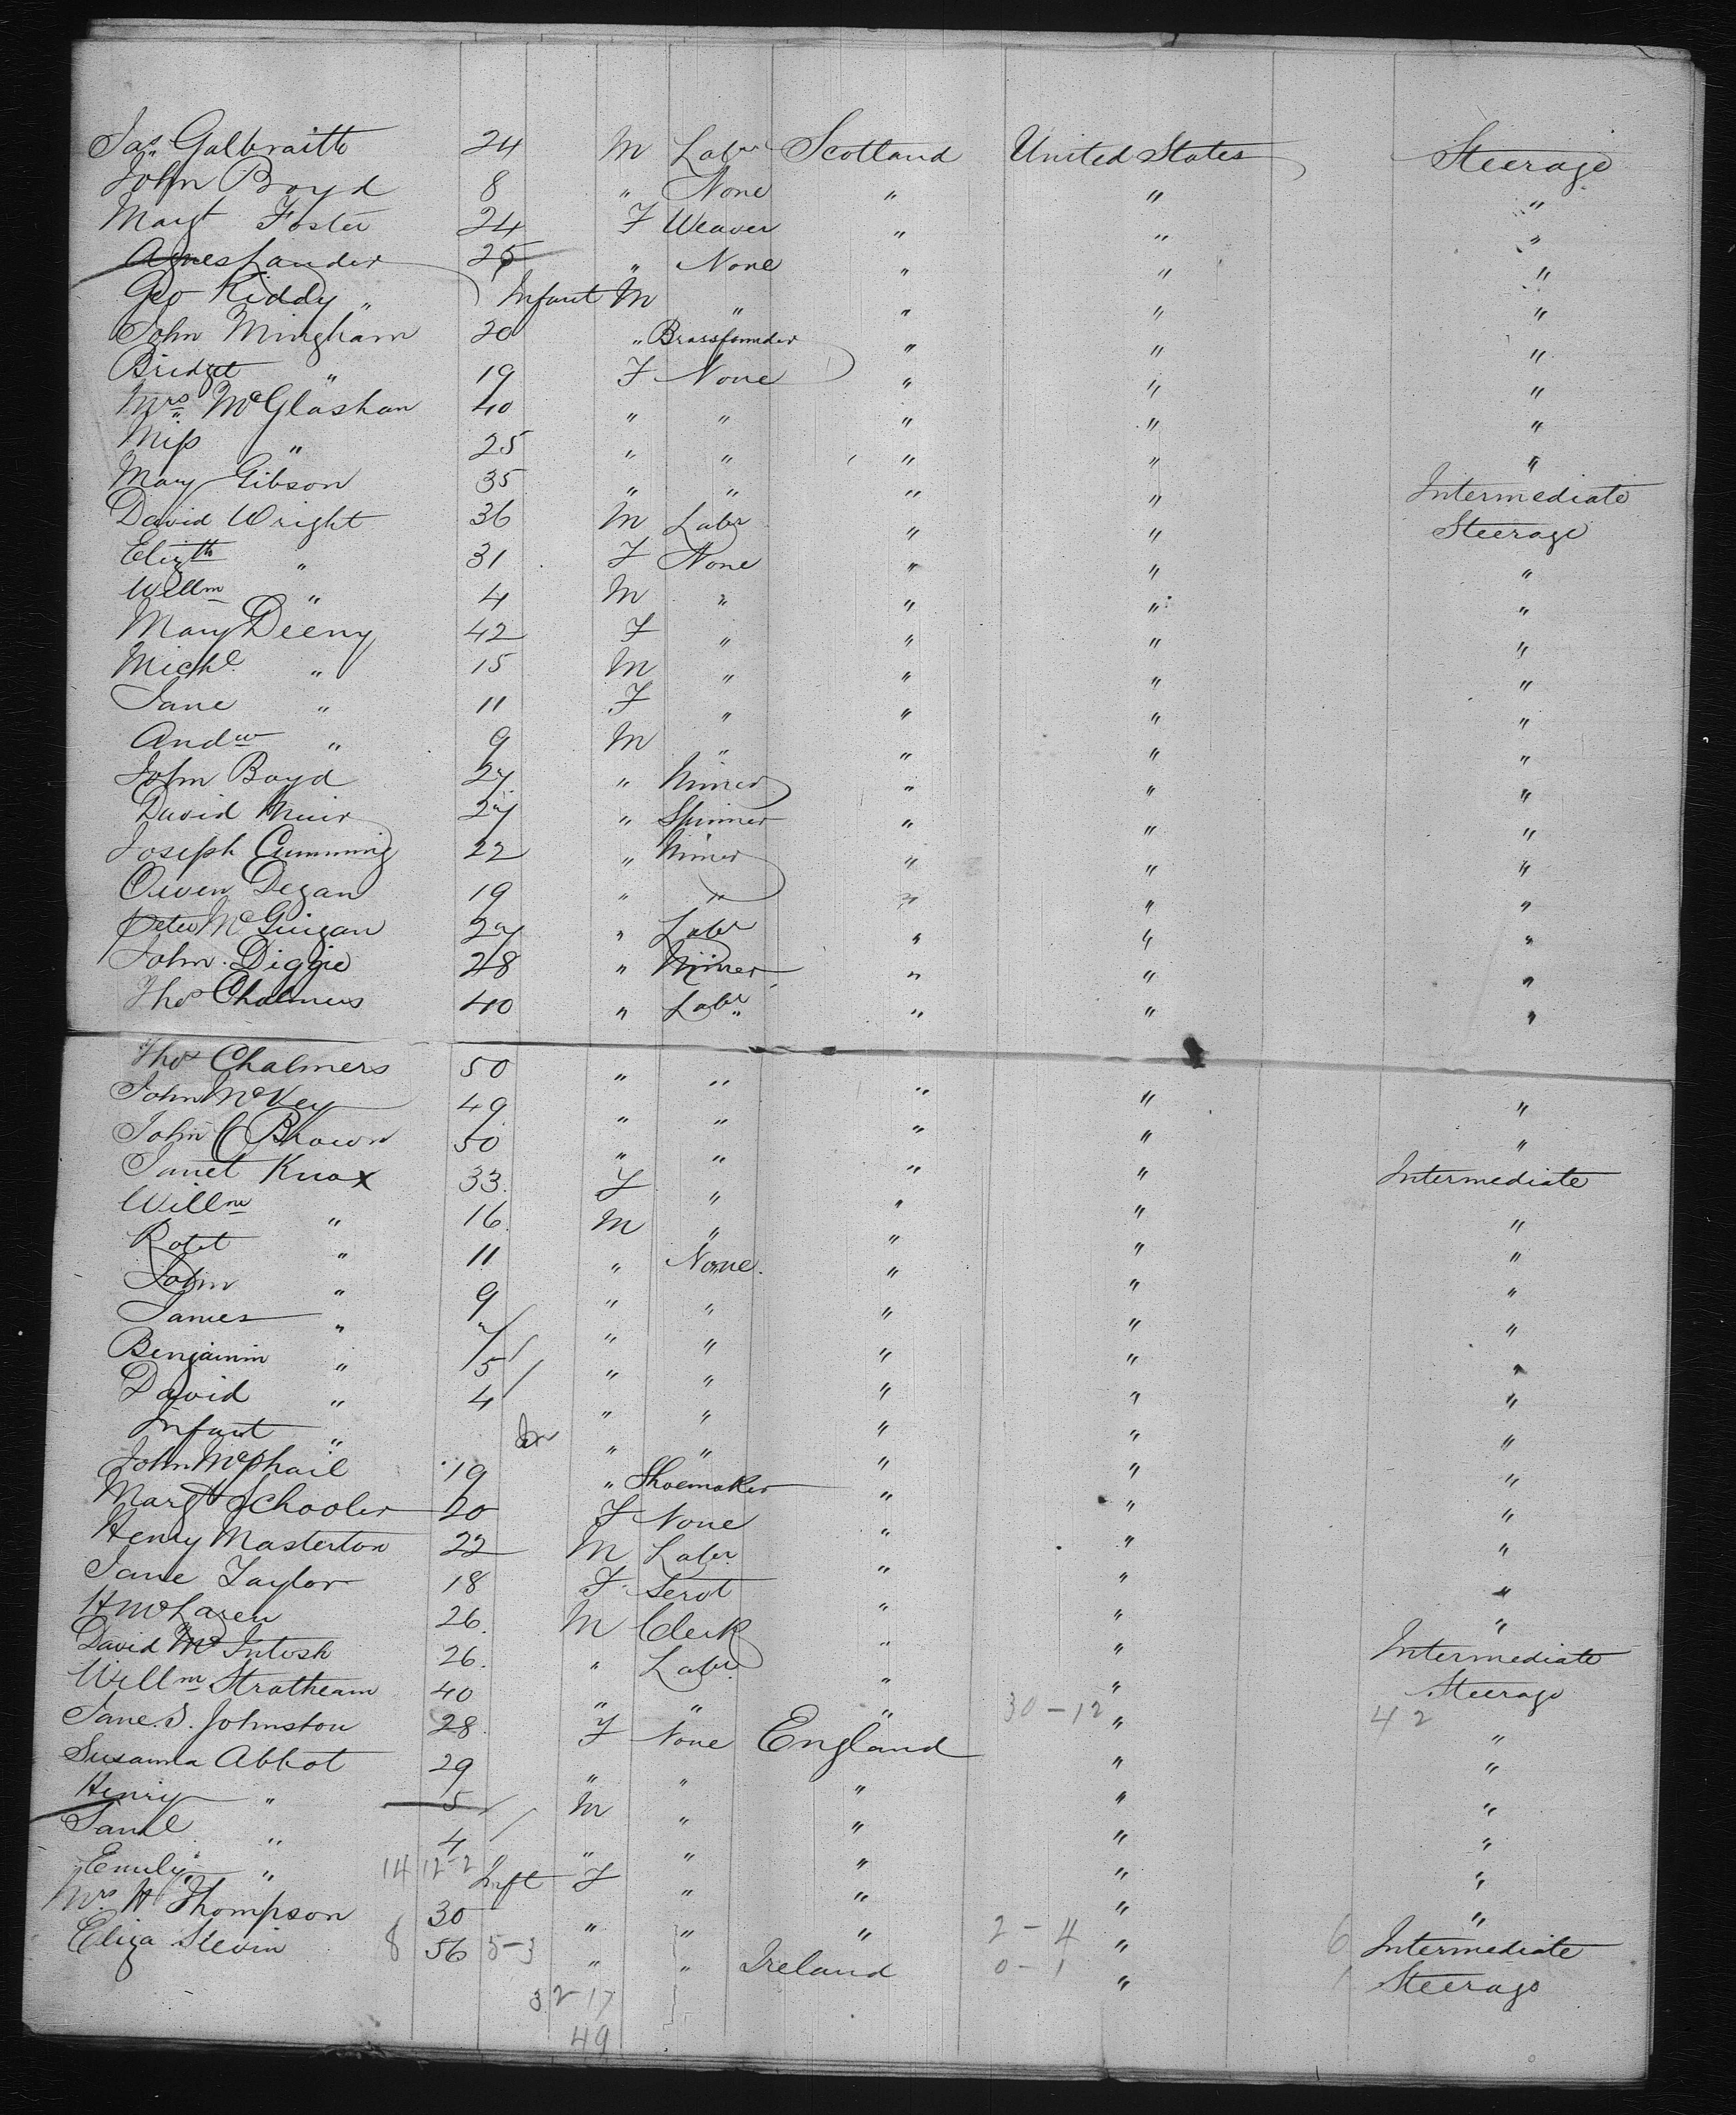 Jas. Galbraith 24 M Labr Scotland United States Steerage
John Boyd 8 " None " " "
Margt Foster 24 F Weaver " " "
Agnes Lauder 25 " None " " "
Geo Kiddy " Infant M " " " "
John Mingham 20 " Brassfounder " " "
Bridget " 19 F None " " "
Mrs McGlashan 40 " " " " "
Miss " 25 " " " " "
Mary Gibson 35 " " " " Intermediate
David Wright 36 M Labr " " Steerage
Elizth " 31 F None " " "
Willm " 4 M " " " "
Mary Deeny 42 F " " " "
Michl " 15 M " " " "
Jane " 11 F " " " "
Andw " 9 M " " " "
John Boyd 27 " Miner " " "
David Muir 27 " Spinner " " "
Joseph Cumming 22 " Miner " " "
Owen Degan 19 " " " " "
Peter McGuigan 27 " Labr " " "
John Diggie 28 " Miner " " "
Thos Chalmers 40 " Labr " " "
Thos Chalmers 50 " " " "
John McKey 49 " " " " "
John C Brown 50 " " " " "
Janet Knox 33 F " " " Intermediate
Willm " 16 M " " " "
Robt " 11 " None " " "
John " 9 " " " " "
James " 7 " " " " "
Benjamin " 5 " " " " "
David " 4 " " " " "
Infant " " " " " "
John McPhail 19 " Shoemaker " " "
Margt Schooler 20 F None " " "
Henry Masterton 22 M Labr " " "
Jane Taylor 18 F Servt " " "
H McLaren 26 M Clerk " " "
David McIntosh 26 " Labr " " Intermediate
Willm Stratheam 40 " " " 30-12 " Steerage
Jane S. Johnston 28 F None England " 42 "
Susanna Abbot 29 " " " " "
Henry " 5 M " " " "
Saml " 4 " " " " "
Emily " 14 12-2 Inft F " " " "
Mrs H Thompson 30 " " " " "
Eliza Slevin 8 56 5-3 " " Ireland 2-4 " 6 Intermediate
0-1 " 1 Steerage
32-17
49